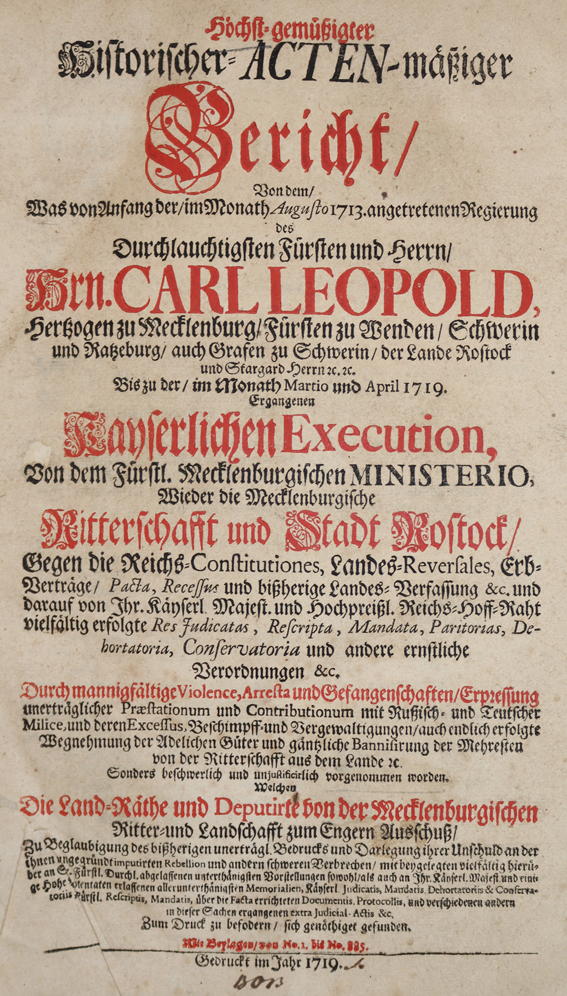 Höchst-gemüßigter
Historischer-ACTEN-mäßiger
Bericht/
Von dem/
Was von Anfang der/ im Monath Augusto 1713. angetretenen Regierung
des
Durchlauchtigsten Fürsten und Herrn/
Hrn. CARL LEOPOLD,
Hertzogen zu Mecklenburg/ Fürsten zu Wenden/ Schwerin
und Ratzeburg/ auch Grafen zu Schwerin/ der Lande Rostock
und Stargard Herrn ꝛc. ꝛc.
Bis zu der/ im Monath Martio und April 1719.
Ergangenen
Kayserlichen Execution,
Von dem Fürstl. Mecklenburgischen MINISTERIO,
Wieder die Mecklenburgische
Ritterschafft und Stadt Rostock/
Gegen die Reichs-Constitutiones, Landes-Reversales, Erb-
Verträge/ Pacta, Recessus und bißherige Landes-Verfassung &c. und
darauf von Ihr. Käyserl. Majest. und Hochpreißl. Reichs-Hoff-Raht
vielfältig erfolgte Res Judicatas, Rescripta, Mandata, Paritorias, De-
hortatoria, Conservatoria und andere ernstliche
Verordnungen &c.
Durch mannigfältige Violence, Arresta und Gefangenschaften/ Erpressung
unerträglicher Præstationum und Contributionum mit Rußisch- und Teutscher
Milice, und deren Excessus, Beschimpff- und Vergewaltigungen/ auch endlich erfolgte
Wegnehmung der Adelichen Güter und gäntzliche Bannisirung der Mehresten
von der Ritterschafft aus dem Lande ꝛc.
Sonders beschwerlich und unjustificirlich vorgenommen worden.
Welchen
Die Land-Räthe und Deputirte von der Mecklenburgischen
Ritter- und Landschafft zum Engern Ausschuß/
Zu Beglaubigung des bißherigen unerträgl. Bedrucks und Darlegung ihrer Unschuld an der
ihnen ungegründt imputirten Rebellion und andern schweren Verbrechen/ mit beygelegten vielfältig hierü-
ber an Se. Fürstl. Durchl. abgelassenen unterthänigsten Vorstellungen sowohl/ als auch an Ihr. Käyserl. Majest. und eini-
ge Hohe Potentaten erlassenen allerunterthänigsten Memorialien, Käyserl. Judicatis, Mandatis, Dehortatoriis & Conserva-
toriis Fürstl. Rescriptis, Mandatis, über die Facta errichteten Documentis, Protocollis, und verschiedenen andern
in dieser Sachen ergangenen extra Judicial-Actis &c.
Zum Druck zu befodern/ sich genöthiget gefunden.
Mit Beylagen/ von No. 1. bis No. 225.
Gedruckt im Jahr 1719.